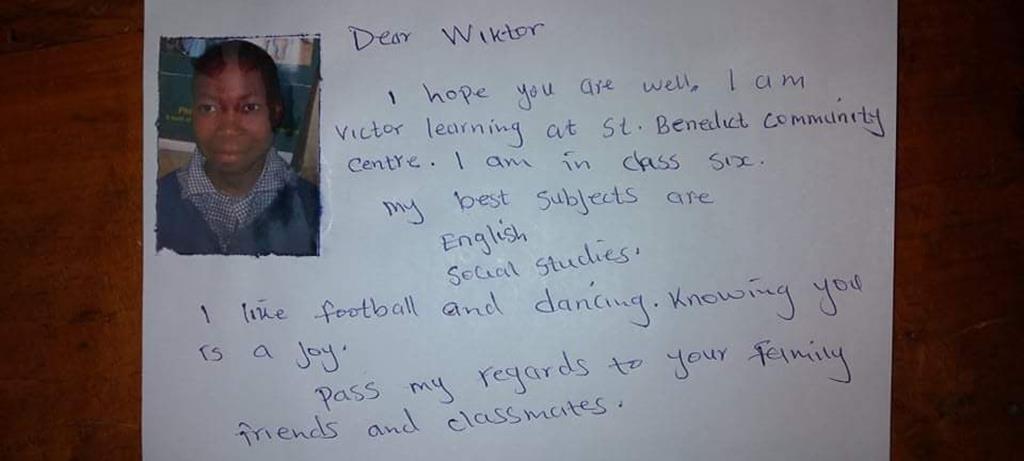 Dear Wiktor
I hope you are well. I am
Victor learning at St. Benedict Community
Centre. I am in class six.
My best subjects are
English
Social studies.
I like football and dancing. Knowing you
is a joy.
Pass my regards to your family
friends and classmates.